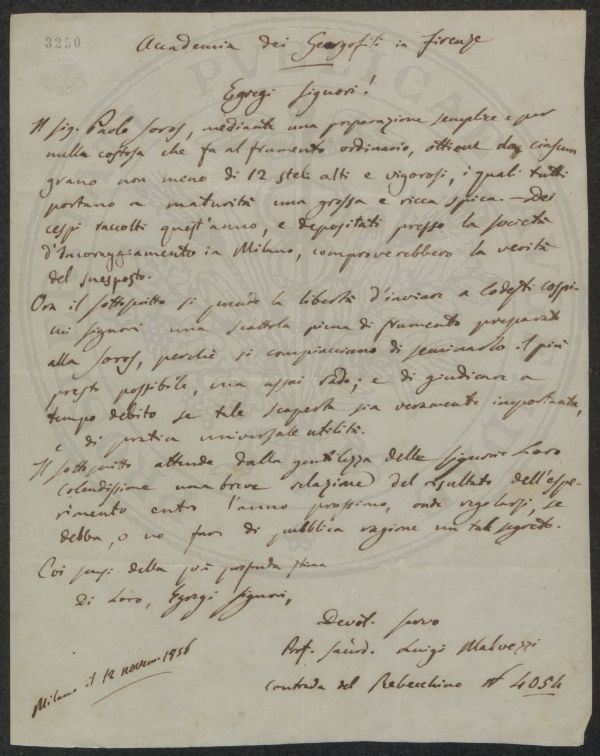 3250
Accademia dei Georgofili in Firenze
Egregi Signori!
Il Sig. Paolo Soros, mediante una preparazione semplice e per
nulla costosa che fa al frumento ordinario, ottiene da ciascun
grano non meno di 12 steli alti e vigorosi, i quali tutti
portano a maturità una grossa e ricca spica. — Dei
cespi raccolti quest'anno, e depositati presso la società
d'Incoraggiamento in Milano, comproverebbero la verità
del suesposto.
Ora il sottoscritto si prende la libertà d'inviare a Codesti Cospi-
cui signori una scattola piena di frumento preparato
alla Soros, perchè si compiacciano di seminarlo il più
presto possibile, ma assai rado; e di giudicare a
tempo debito se tale scoperta sia veramente importante,
e di pratica universale utilità.
Il sottoscritto attende dalla gentilezza delle signorie Loro
Colendissime una breve relazione del risultato dell'espe-
rimento entro l'anno prossimo, onde regolarsi, se
debba, o no far di pubblica ragione un tal segreto.
Coi sensi della più profonda stima
Di Loro, Egregi Signori,
Devot. servo
Prof. Sacerd. Luigi Malvezzi
Contrada del Rebecchino N 4054
Milano il 12 novem. 1856